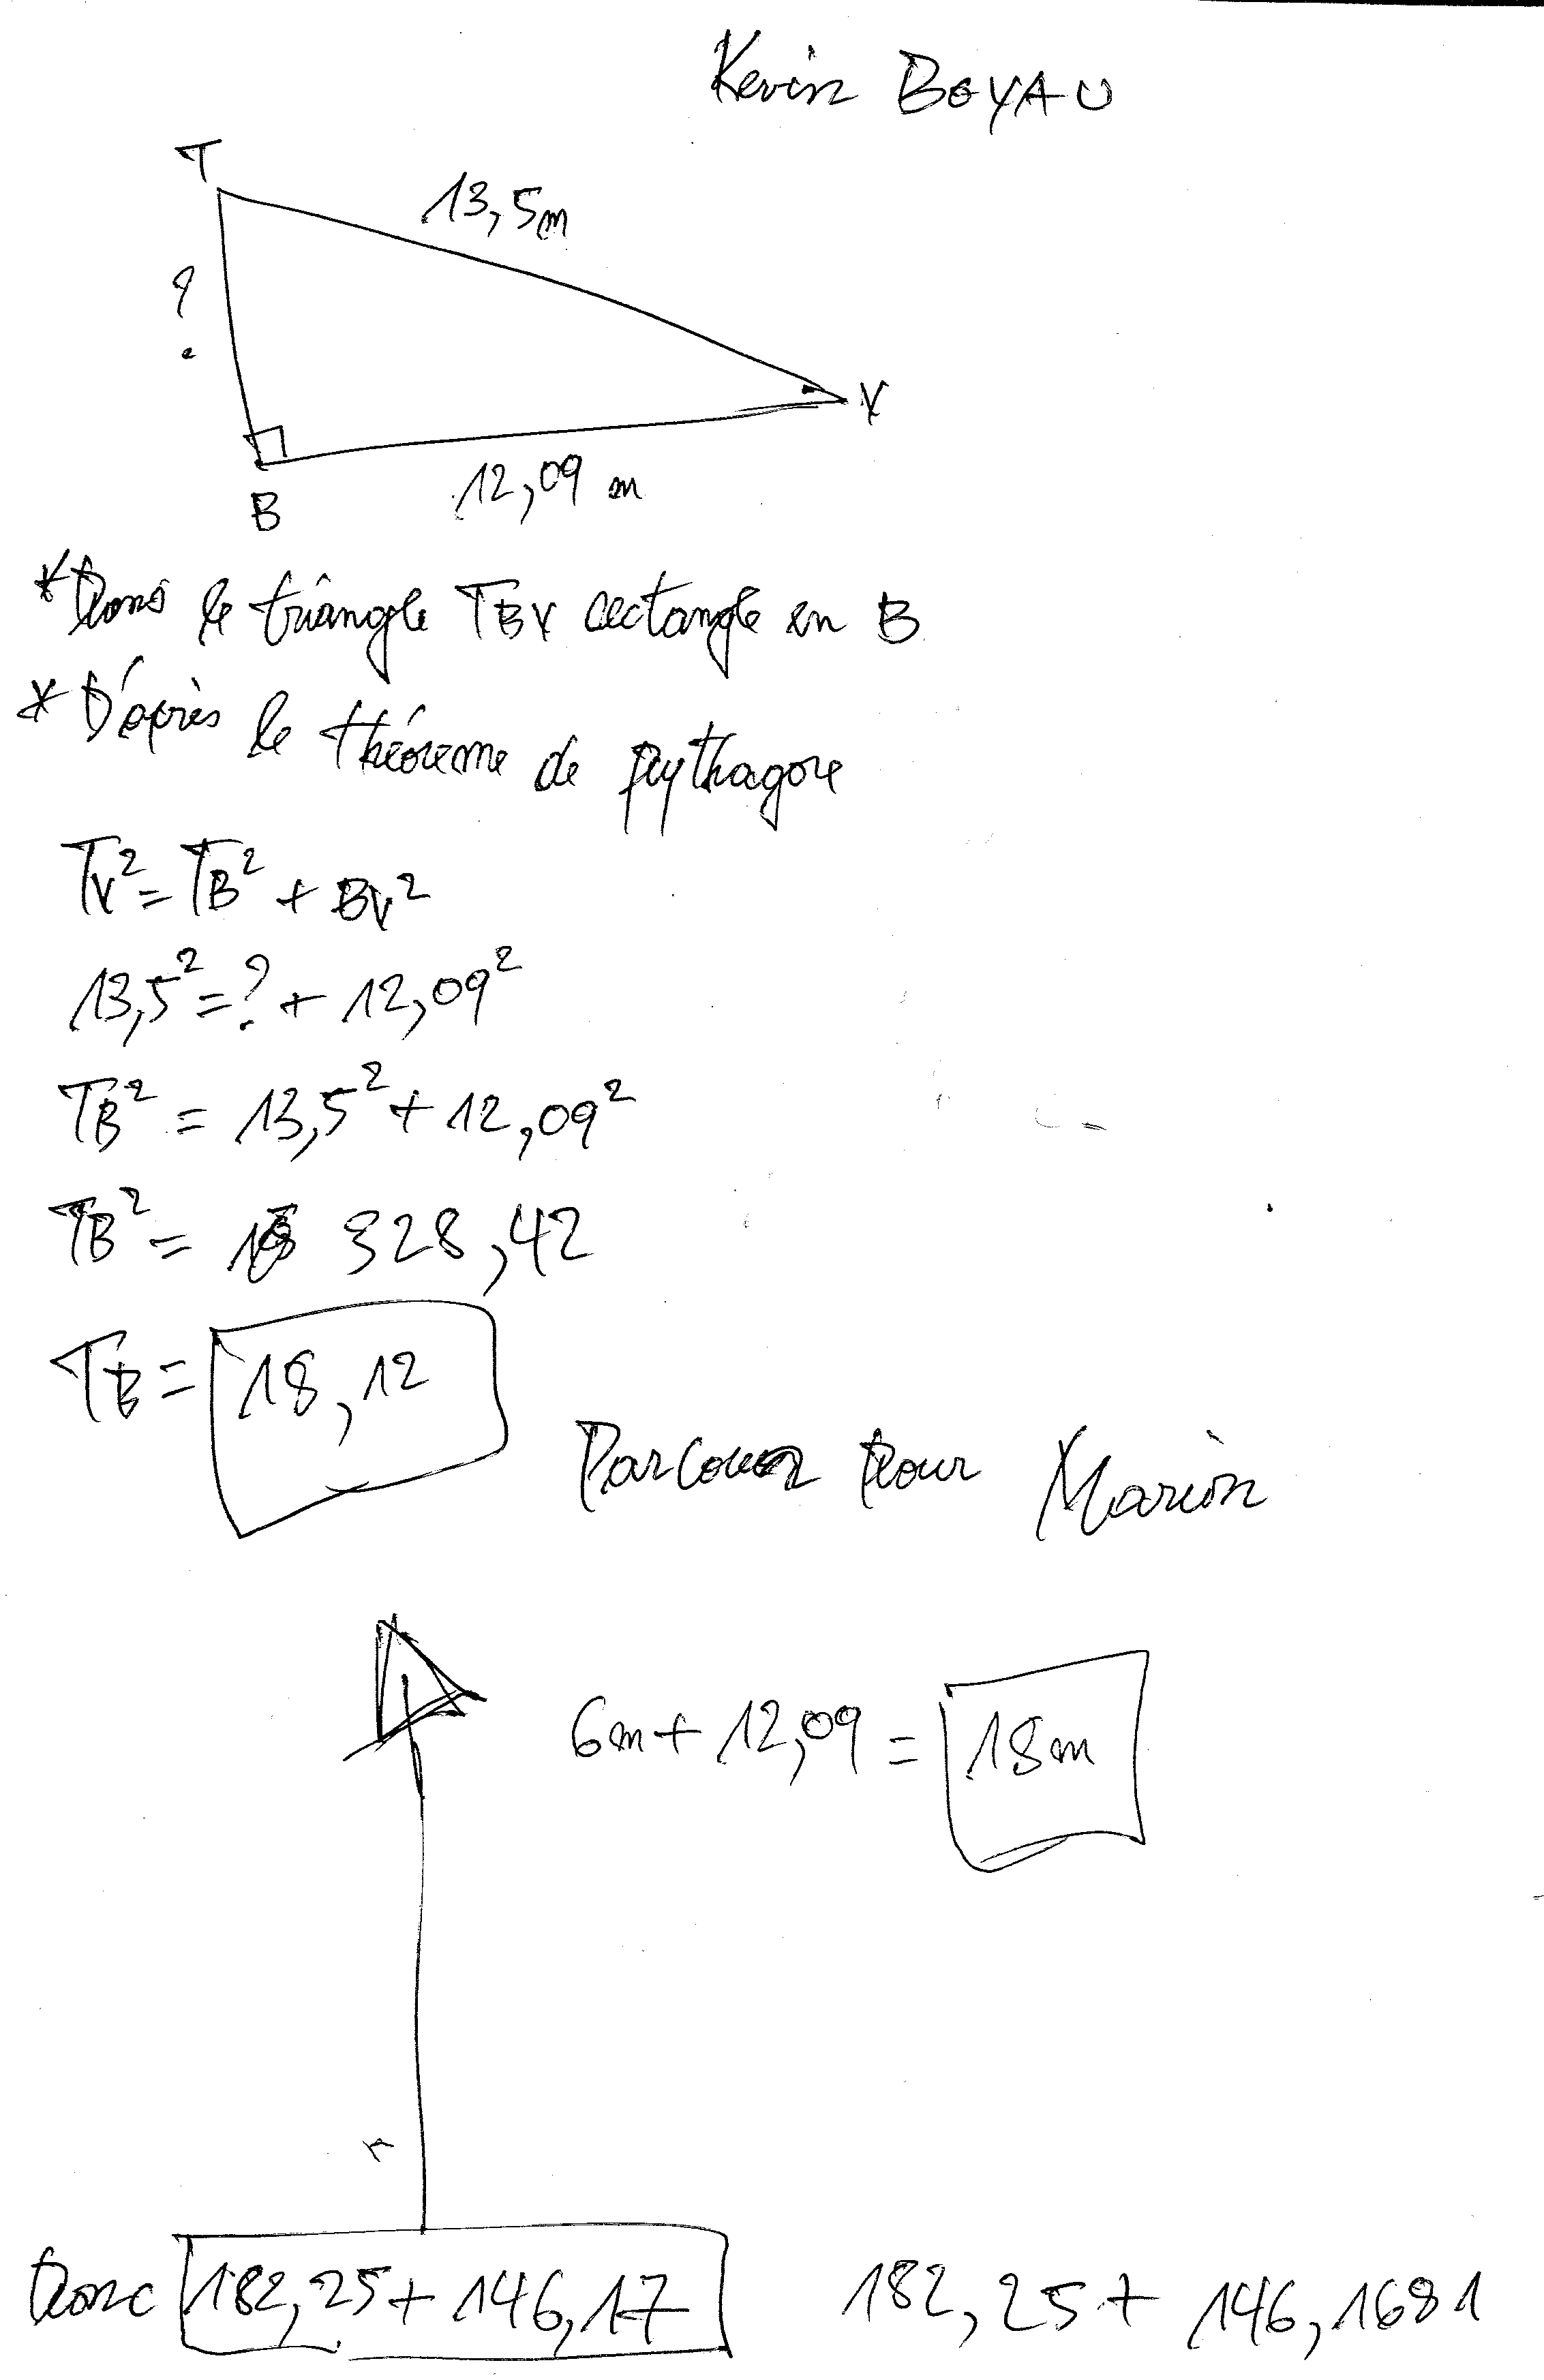 Kevin BOYAU
T
13,5m
?
V
B
12,09 m
* Dans le triangle TBV rectangle en B
* D'après le théoreme de pythagore
TV² = TB² + BV²
13,5² = ? + 12,09²
TB² = 13,5² + 12,09²
TB² = 328,42
TB = 18,12
Parcours pour Marion
6m + 12,09 = 18m
donc 182,25 + 146,17
182,25 + 146,1681